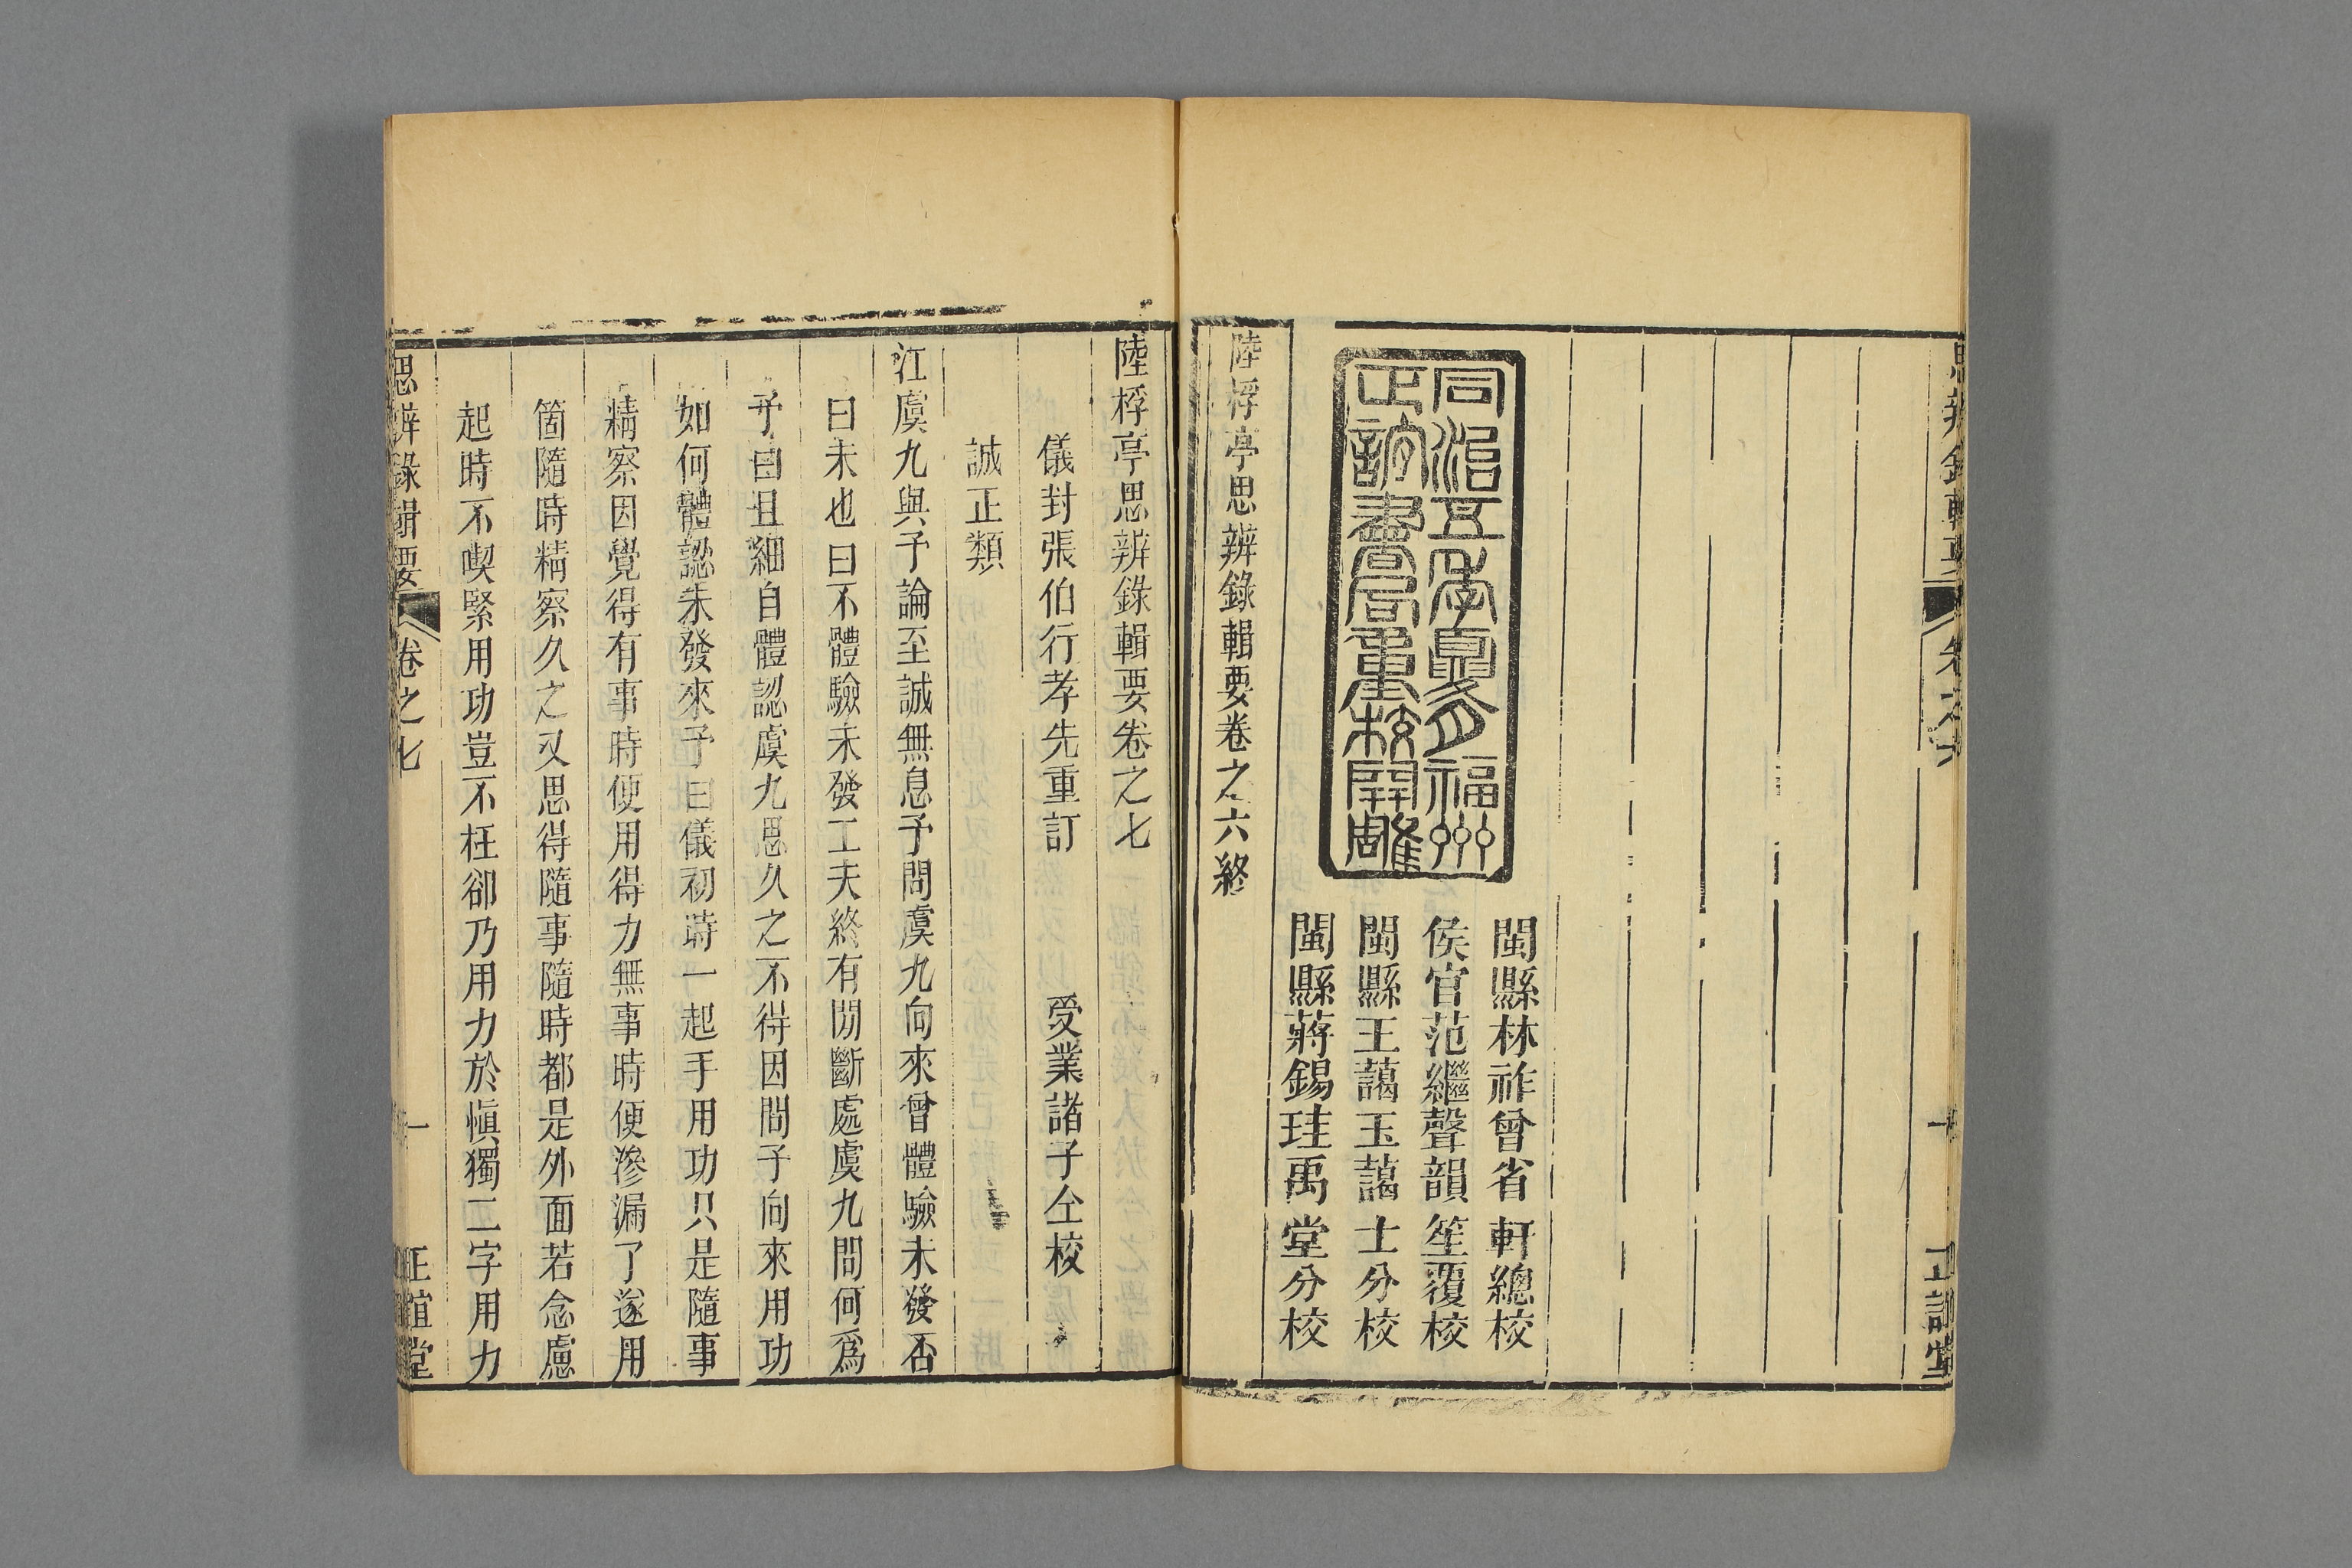 同治五年夏月福州
正誼書局重校開雕
閩縣林祚曾省軒總校
侯官范繼聲韻笙覆校
閩縣王藹玉藹士分校
閩縣蔣錫珪禹堂分校
陸桴亭思辨錄輯要卷之六終
陸桴亭思辨錄輯要卷之七
儀封張伯行孝先重訂 受業諸子仝校
誠正類
江虞九與予論至誠無息予問虞九向來曾體驗未發否
曰未也曰不體驗未發工夫終有間斷處虞九問何為
予曰且細自體認虞九思久之不得因問予向來用功
如何體認未發來予曰儀初時一起手用功只是隨事
精察因覺得有事時便用得力無事時便滲漏了遂用
箇隨時精察久之又思得隨事隨時都是外面若念慮
起時不喫緊用功豈不枉卻乃用力於慎獨二字用力
思辨錄輯要 卷之七 一 正誼堂